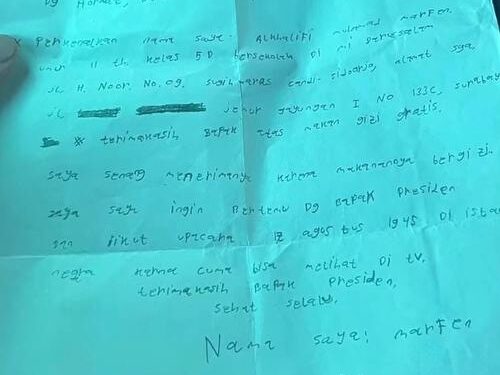 Dg Hormat,
Perkenalkan nama saya: Alkhalifi muhamad marfen.
umur 11 th. kelas 5D bersekolah Di mi Darussalam
JL H. Noor. No. 09. sugihwaras candi. sidoarjo, alamat sya,
JL jemur gayungan I No 133C, surabaya
* terimakasih Bapak atas makan gizi gratis.
saya senang menerimanya karena makanannya bergizi.
saya ingin Bertemu Dg Bapak Presiden
Dan ikut upacara 17 agustus 1945 Di ista
negra karna cuma bisa melihat Di tv.
terimakasih Bapak Presiden,
sehat selalu.
Nama saya: marfen